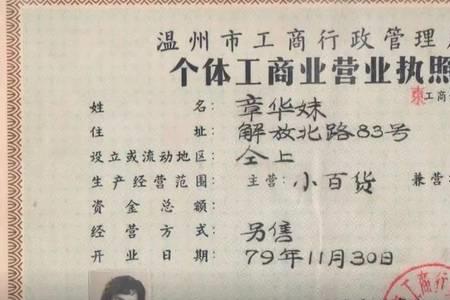 温州市工商行政管理
个体工商业营业执照
东工商
姓名：章华妹
住址：解放北路83号
设立或流动地区：仝上
生产经营范围：主营：小百货 兼营
资金总额：
经营方式：另售
开业日期：79年11月30日
工商行